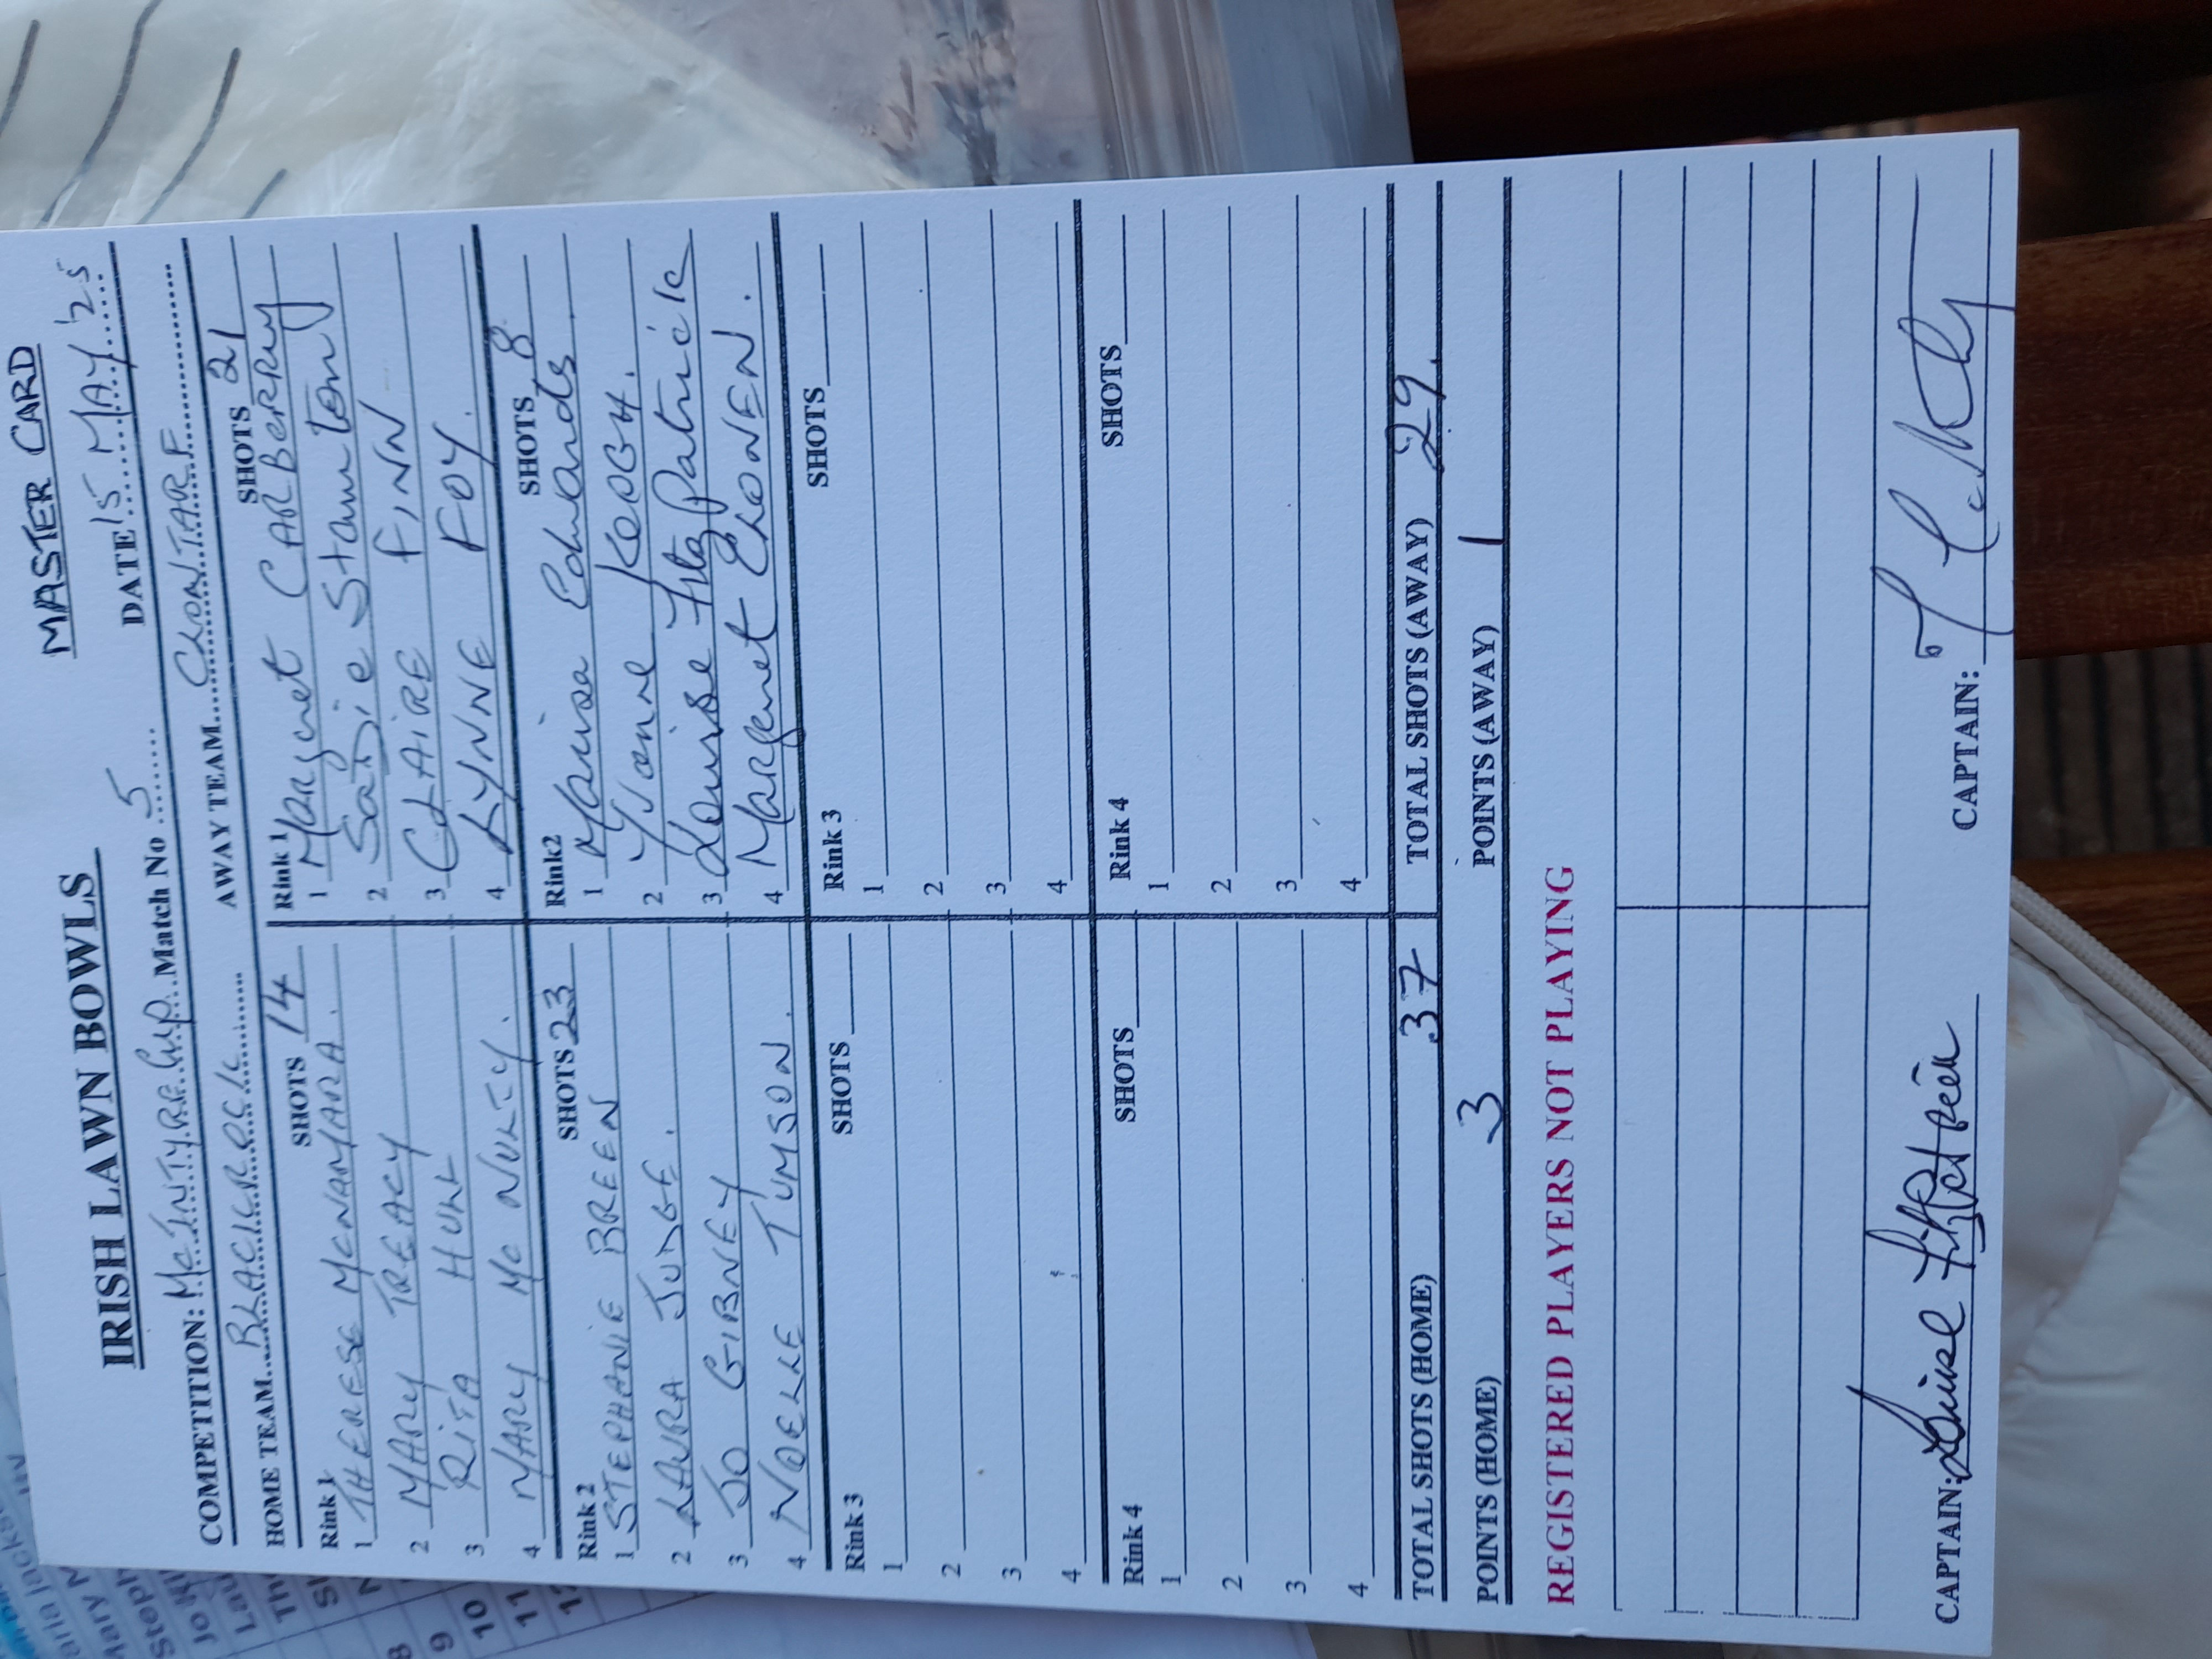 MASTER CARD
IRISH LAWN BOWLS
DATE 15 MAY '25
COMPETITION: McINTYRE Cup Match No 5
HOME TEAM BLACKROCK AWAY TEAM CLONTARF
SHOTS 14 SHOTS 21
Rink 1 Rink 1
1 THERESE MCNAMARA. 1 Margret CARBERRY
2 MARY TREACY 2 SaDie Staunton
3 RITA HULL 3 CLAIRE FINN
4 MARY Mc NULTY. 4 LYNNE FOY.
Rink 2 SHOTS 23 Rink2 SHOTS 8
1 STEPHANIE BREEN 1 Marisa Edwards
2 LAURA JUDGE. 2 Yvonne KEOGH.
3 JO GIBNEY 3 Louise Fitzpatrick
4 NOELLE TUMSON. 4 Margaret
Rink 3 SHOTS Rink 3 SHOTS
1 1
2 2
3 3
4 4
Rink 4 SHOTS Rink 4 SHOTS
1 1
2 2
3 3
4 4
TOTAL SHOTS (HOME) 37 TOTAL SHOTS (AWAY) 29.
POINTS (HOME) 3 POINTS (AWAY) 1
REGISTERED PLAYERS NOT PLAYING
CAPTAIN: Louise CAPTAIN:
8
9
10
11